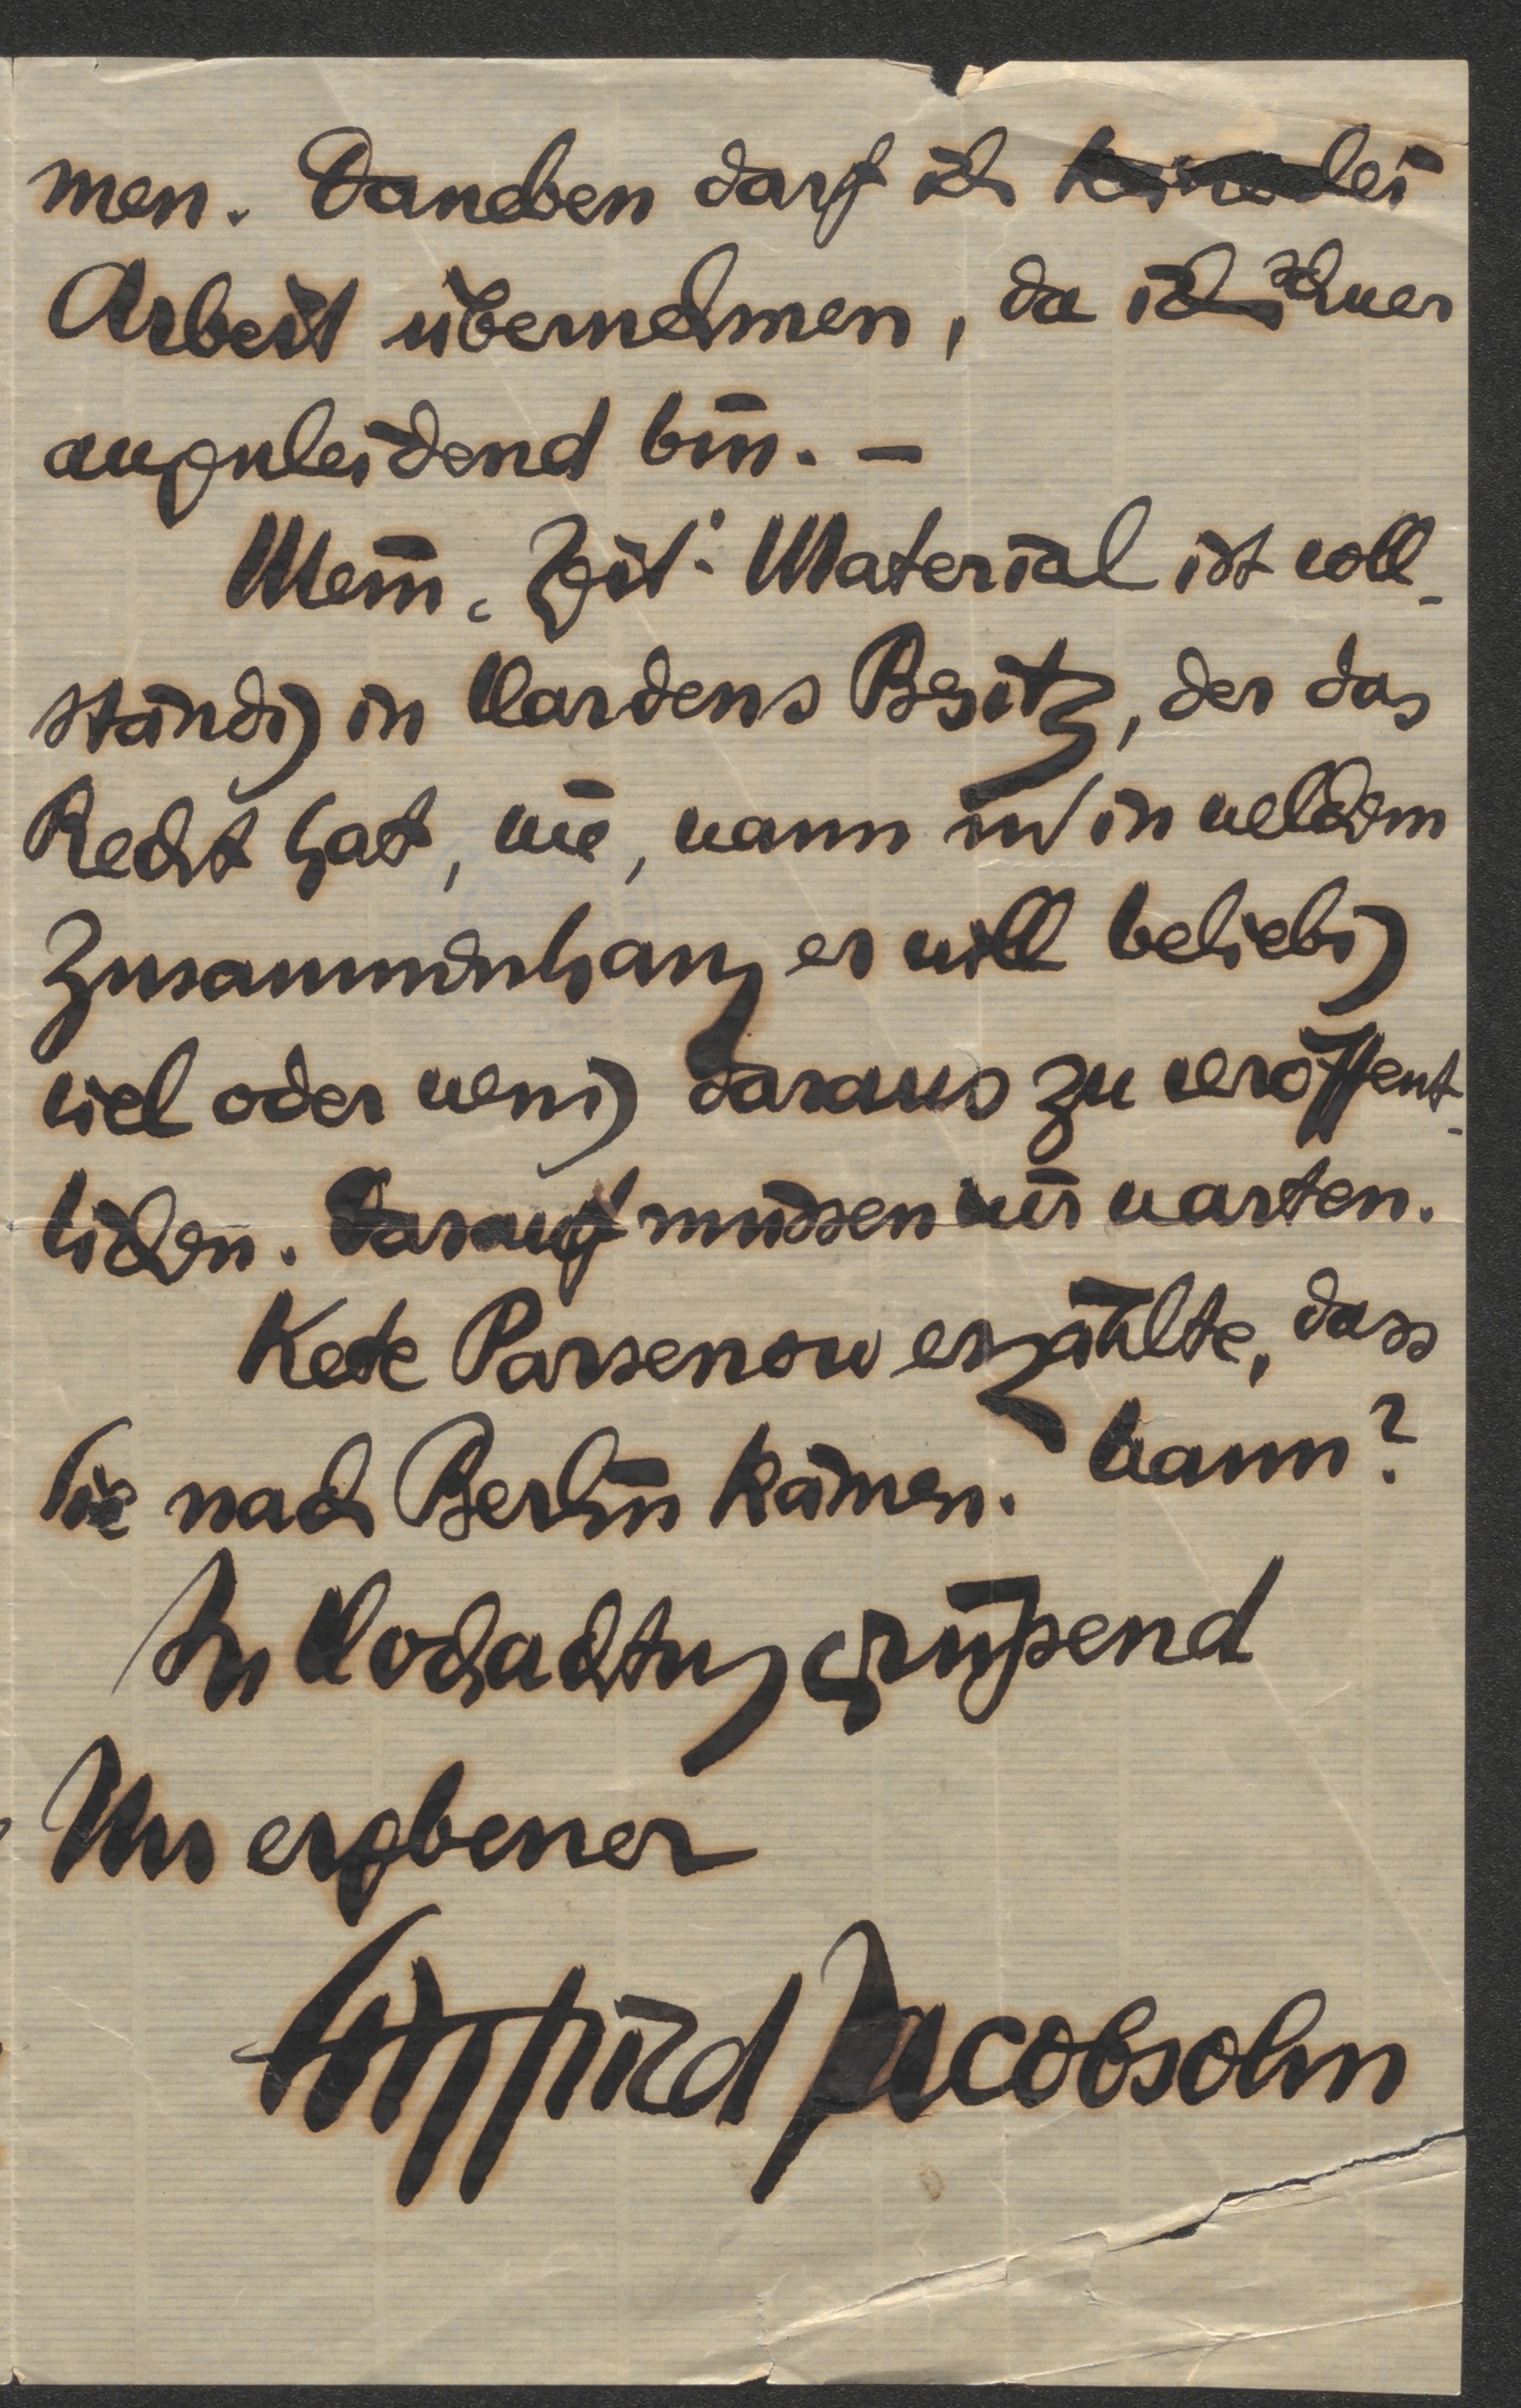 men. Daneben darf ich keinerlei
Arbeit übernehmen, da ich schwer
augenleidend bin. –
Mein „Zeit“-Material ist voll-
ständig in Hardens Besitz, der das
Recht hat, wie, wann und in welchem
Zusammenhang er will beliebig
viel oder wenig daraus zu veröffent-
lichen. Darauf müssen wir warten.
Kete Parsenow erzählte, dass
Sie nach Berlin kämen. Wann?
In Hochachtung grüßend
Ihr ergebener
Siegfried Jacobsohn